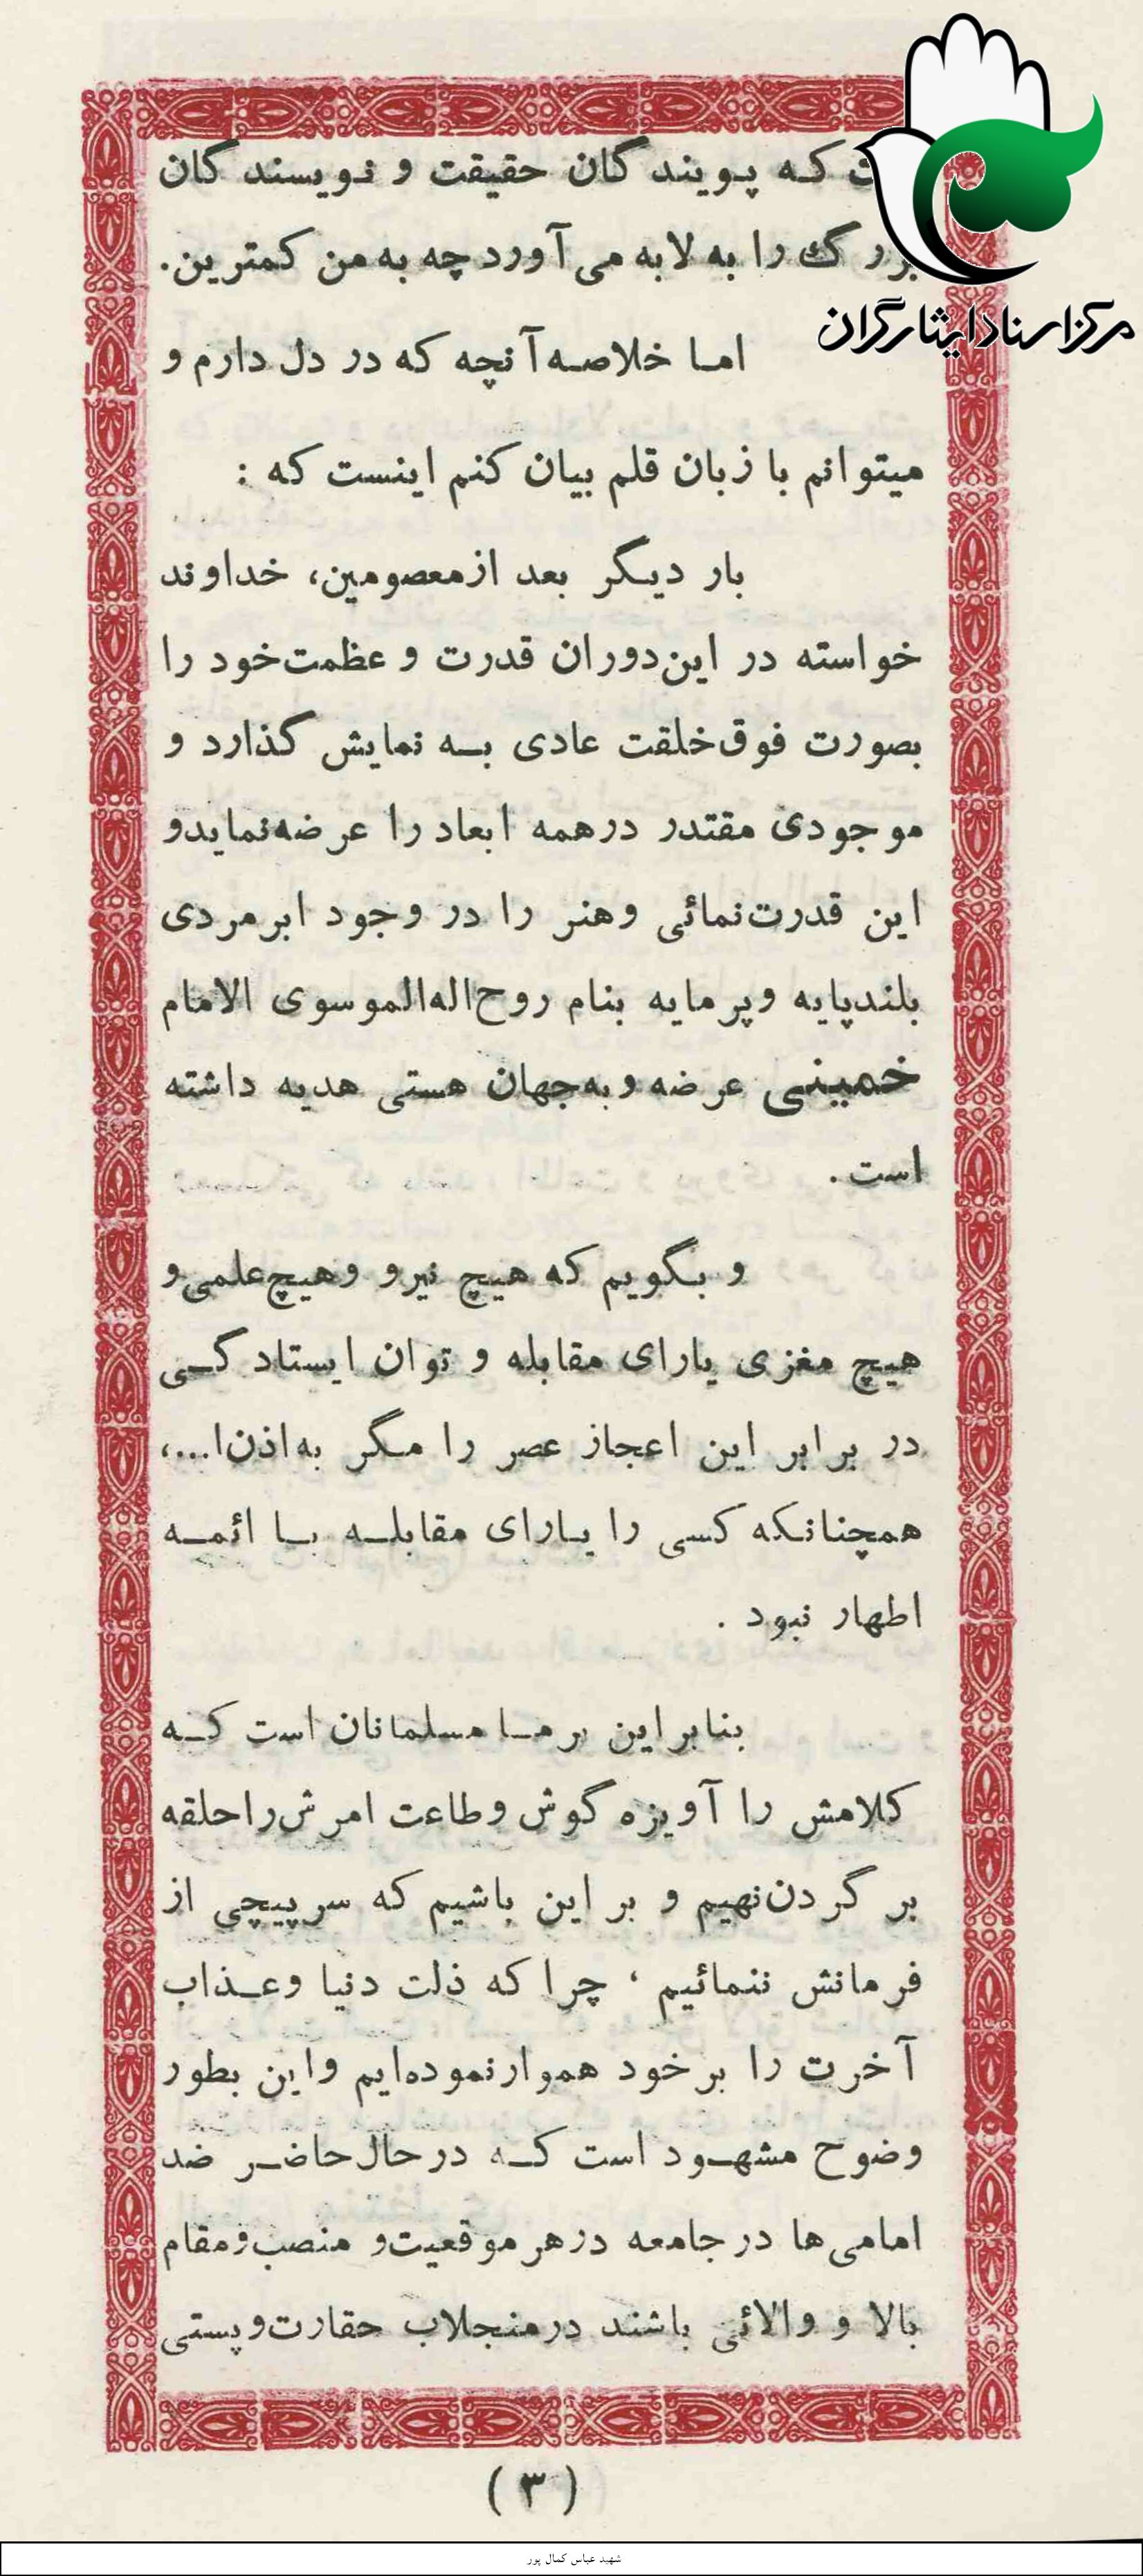 که پویندگان حقیقت و نویسندگان
را به لابه می‌آورد چه به من کمترین.
مرکز اسناد ایثارگران
اما خلاصه آنچه که در دل دارم و
میتوانم با زبان قلم بیان کنم اینست که :
بار دیگر بعد از معصومین، خداوند
خواسته در این دوران قدرت و عظمت خود را
بصورت فوق خلقت عادی به نمایش گذارد و
موجودی مقتدر در همه ابعاد را عرضه نماید و
این قدرت‌نمائی و هنر را در وجود ابرمردی
بلندپایه و پرمایه بنام روح‌اله الموسوی الامام
خمینی عرضه و به جهان هستی هدیه داشته
است .
و بگویم که هیچ نیرو و هیچ علمی و
هیچ مغزی یارای مقابله و توان ایستادگی
در برابر این اعجاز عصر را مگر به اذن ا...،
همچنانکه کسی را یارای مقابله با ائمه
اطهار نبود .
بنابراین بر ما مسلمانان است که
کلامش را آویزه گوش و طاعت امرش را حلقه
بر گردن نهیم و بر این باشیم که سرپیچی از
فرمانش ننمائیم ، چرا که ذلت دنیا و عذاب
آخرت را بر خود هموار نموده‌ایم و این بطور
وضوح مشهود است که در حال حاضر ضد
امامی‌ها در جامعه در هر موقعیت و منصب و مقام
بالا و والائی باشند در منجلاب حقارت و پستی
( ۳ )
شهید عباس کمال پور